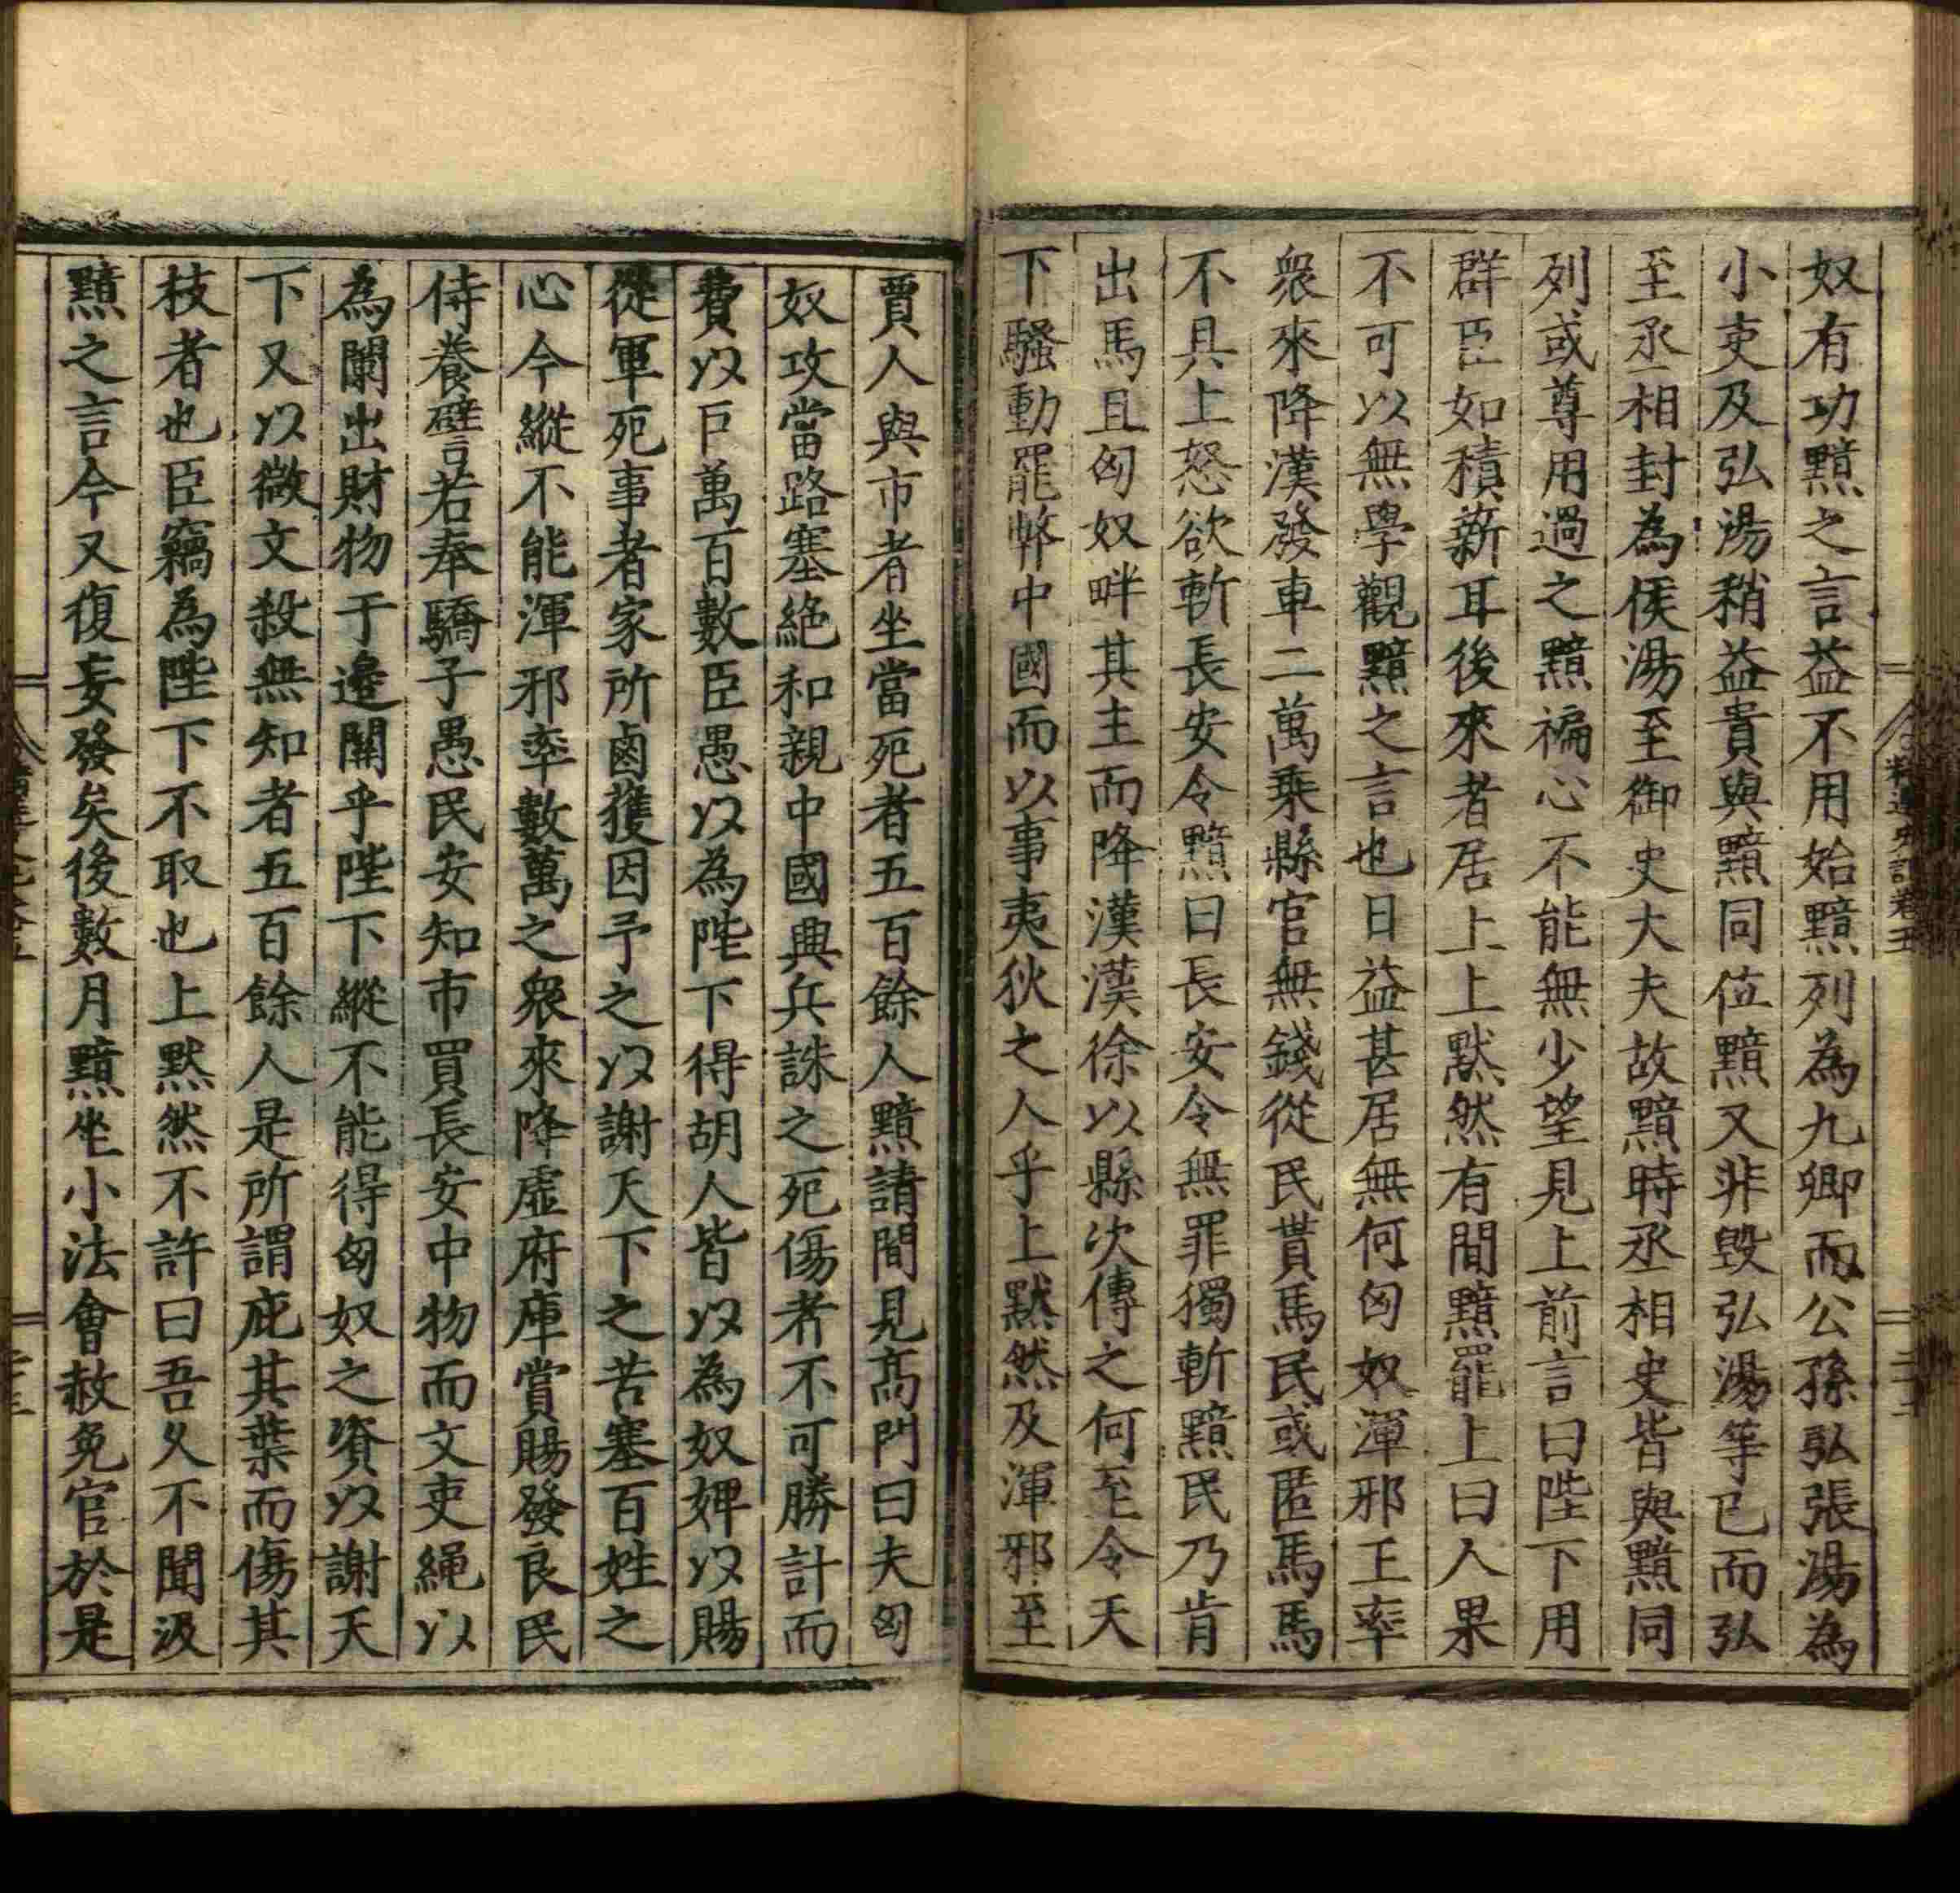 奴有功黯之言益不用始黯列為九卿而公孫弘張湯為
小吏及弘湯稍益貴與黯同位黯又非毀弘湯等已而弘
至丞相封為侯湯至御史大夫故黯時丞相史皆與黯同
列或尊用過之黯褊心不能無少望見上前言曰陛下用
群臣如積薪耳後來者居上上黙然有間黯罷上曰人果
不可以無學觀黯之言也日益甚居無何匈奴渾邪王率
衆來降漢發車二萬乗縣官無錢從民貰馬民或匿馬馬
不具上怒欲斬長安令黯曰長安令無罪獨斬黯民乃肯
出馬且匈奴畔其主而降漢漢徐以縣次傳之何至令天
下騷動罷弊中國而以事夷狄之人乎上黙然及渾邪至
賈人與市者坐當死者五百餘人黯請間見髙門曰夫匈
奴攻當路塞絶和親中國興兵誅之死傷者不可勝計而
費以巨萬百數臣愚以為陛下得胡人皆以為奴婢以賜
從軍死事者家所鹵獲因予之以謝天下之苦塞百姓之
心今縱不能渾邪率數萬之衆來降虛府庫賞賜發良民
侍養譬若奉驕子愚民安知市買長安中物而文吏繩以
為闌出財物于邊關乎陛下縱不能得匈奴之資以謝天
下又以微文殺無知者五百餘人是所謂庇其葉而傷其
枝者也臣竊為陛下不取也上黙然不許曰吾久不聞汲
黯之言今又復妄發矣後數月黯坐小法會赦免官於是